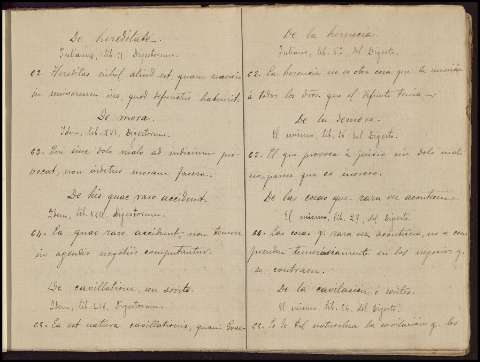 De hereditate.
Julianus, lib. VI. Digestorum.
62. Hereditas nihil aliud est quam
in universum ius, quod defunctus habuerit.
De mora.
Idem, lib. XVII. Digestorum.
63. Qui sine dolo malo ad iudicium pro-
vocat, non videtur moram facere.
De his quae raro accidunt.
Idem, lib. Digestorum.
64. Ea quae raro accidunt, non temere
in agendis negotiis computantur.
De cavillatione, seu sorite.
Idem, lib. Digestorum.
65. Ea est natura cavillationis, quam Grae-
De la herencia.
Juliano, lib. del Digesto.
62. La herencia no es otra cosa que la sucesión
á todos los dros. que el difunto tenia.
De la demora.
El mismo, lib. del Digesto.
63. El que provoca á juicio sin dolo malo
no parece que es moroso.
De las cosas que rara vez acontecen.
El mismo, lib. del Digesto.
64. Las cosas q. rara vez acontecen, no se com-
prenden temerariamente en los negocios q.
se contraen.
De la cavilacion ó
El mismo, lib. del Digesto.
65. Es de tal naturaleza la cavilación q. los